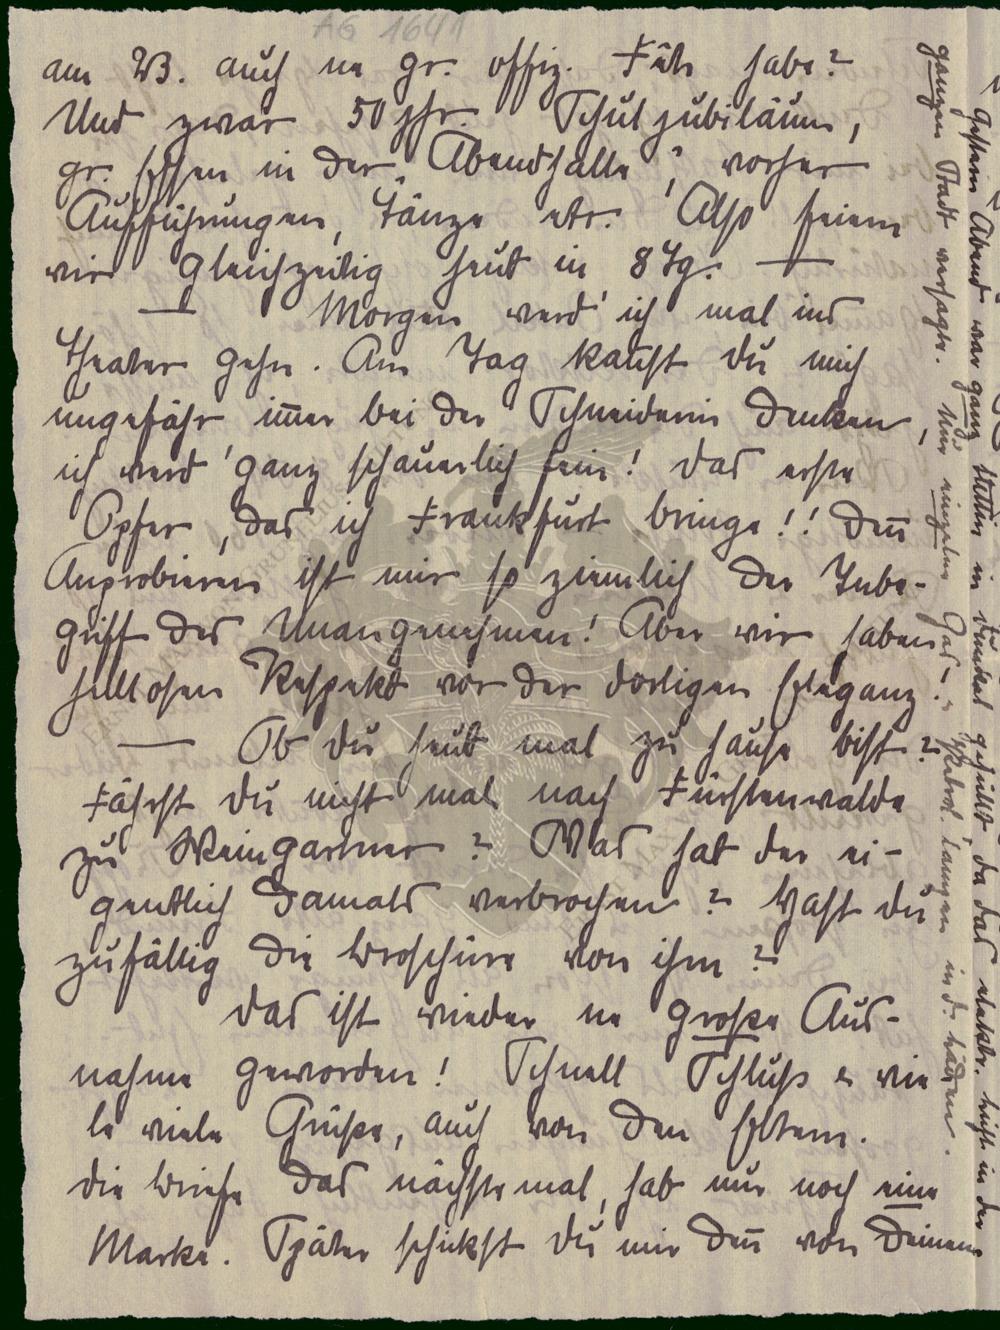 AG 1641
am 23. auch ne gr. offiz. Fête habe?
Und zwar 50 jhr. Schuljubiläum,
gr. Essen in der „Abendhalle", vorher
Aufführungen, Tänze etc. Also feiern
wir gleichzeitig heut in 8 Tg. —
— Morgen werd' ich mal ins
Theater gehn. Am Tag kannst Du mich
ungefähr im̅er bei der Schneiderin denken,
ich werd' ganz schauerlich fein! Das erste
Opfer, das ich Frankfurt bringe!! Den̅
Anprobieren ist mir so ziemlich der Inbe-
griff des Unangenehmen! Aber wir haben
heillosen Respekt vor der dortigen Eleganz!
— Ob Du heut mal zu Hause bist?
Fährst Du nicht mal nach Fürstenwalde
zu Weingartner? Was hat der ei-
gentlich damals verbrochen? Hast Du
zufällig die Broschüre von ihm?
Das ist wieder ne große Aus-
nahme geworden! Schnell Schluß & vie
le viele Grüße, auch von den Eltern.
Die Briefe das nächste mal, hab nur noch eine
Marke. Später schickst Du mir den̅ von Deinem
Gestern Abend war ganz Stettin in Dunkel gehüllt, da das elektr. Licht in der
ganzen Stadt versagte. Nur einzelne Gas- & Petrol. Lampen in d. Läden.